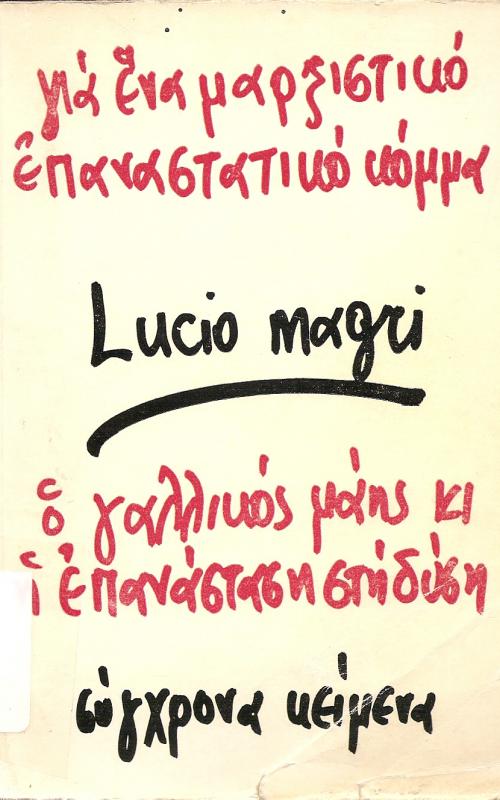 γιά ἕνα μαρξιστικό
ἐπαναστατικό κόμμα
Lucio magri
ὁ γαλλικός μάης κι
ἡ ἐπανάσταση στή δύση
σύγχρονα κείμενα